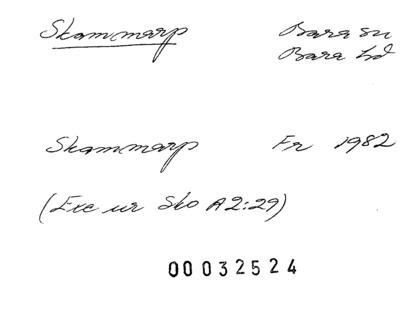 Skammarp Bara sn
Bara hd
Skammarp Fr 1982
(Exc ur Sko A2:29)
00032524